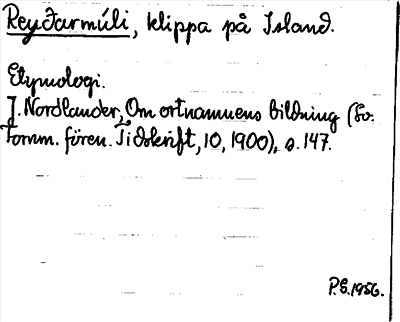 Reyðarmúli, klippa på Island.
Etymologi.
J. Nordlander, Om ortnamnens bildning (Sv.
Fornm. fören. Tidskrift, 10, 1900), s. 147.
P.E. 1956.